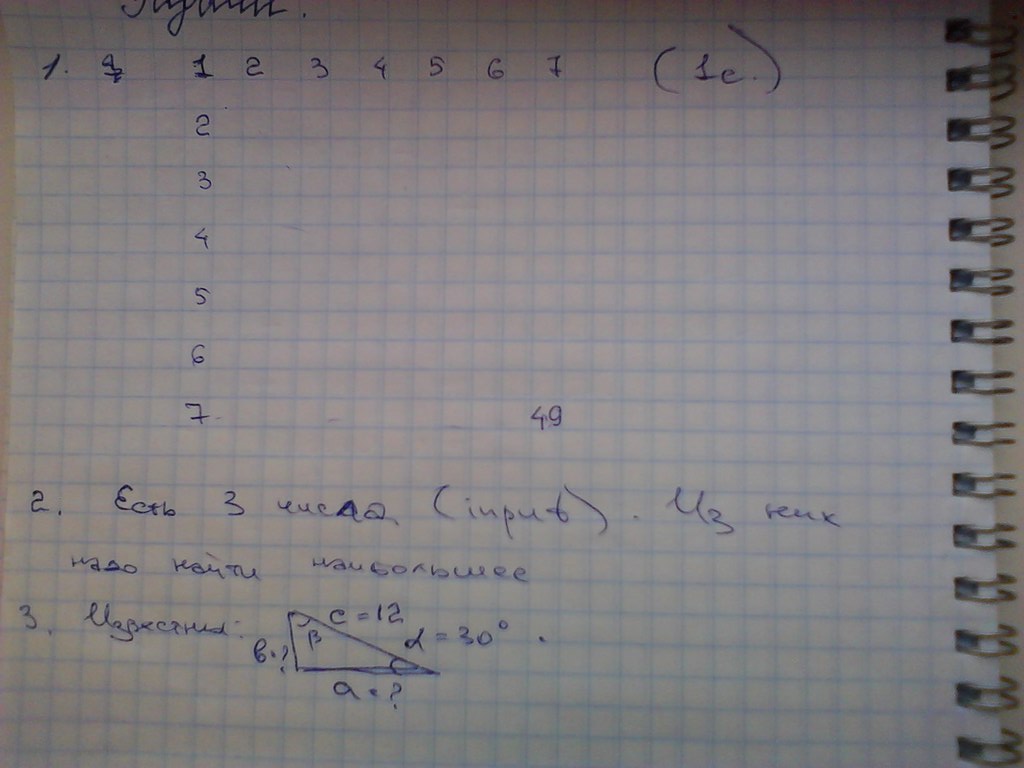 1. 1 2 3 4 5 6 7 (1с.)
2
3
4
5
6
7 49
2. Есть 3 числа (input). Из них
надо найти наибольшее
3. Известны: c = 12
β α = 30°.
в = ?
a = ?